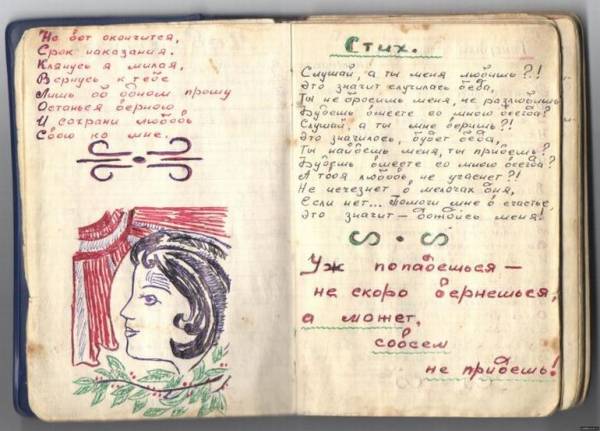 Но вот окончится,
Срок наказания.
Клянусь я милая,
Вернусь к тебе
Лишь об одном прошу
Останься верною
И сохрани любовь
Свою ко мне.
Стих.
Слушай, а ты меня любишь?!
Это значит случилась беда,
Ты не бросишь меня, не разлюбишь
Будешь вместе со мною всегда?
Слушай, а ты мне веришь?!
Это значилось, будет беда,
Ты найдешь меня, ты придешь?
Будешь вместе со мною всегда?
А твоя любовь, не угаснет?!
Не исчезнет в мелочах дня,
Если нет... Помоги мне в счастье,
Это значит — меня!
Уж попадешься —
не скоро вернешься,
а может,
совсем
не придешь!